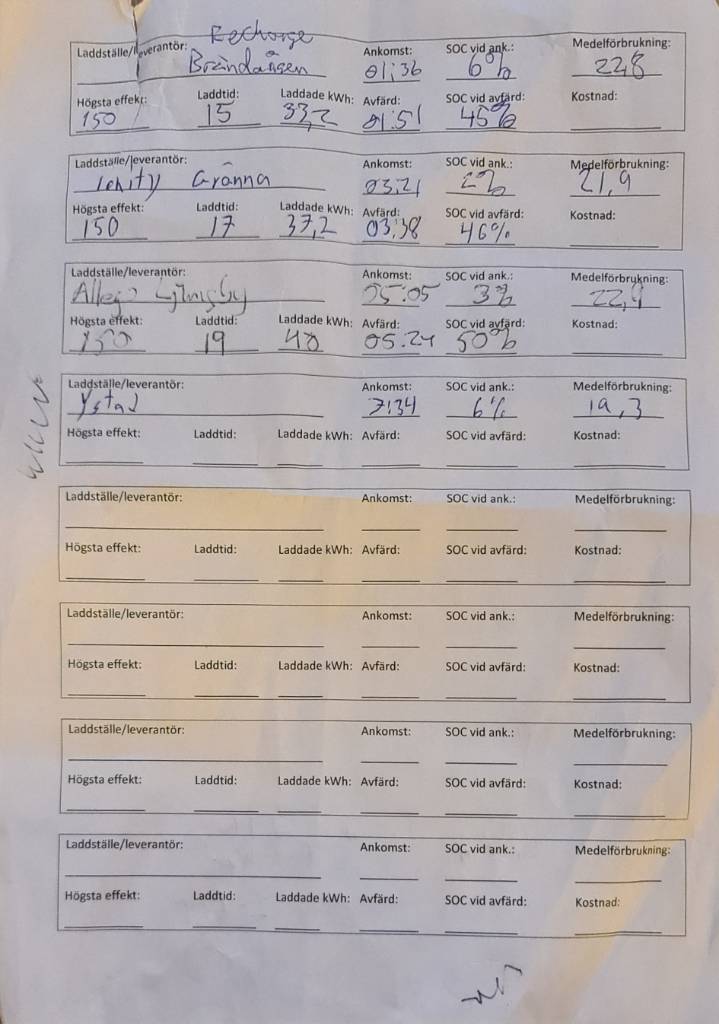 Recharge
Laddställe/leverantör: Brändåsen Ankomst: 01:36 SOC vid ank.: 6% Medelförbrukning: 22,8
Högsta effekt: 150 Laddtid: 15 Laddade kWh: 33,2 Avfärd: 01:51 SOC vid avfärd: 45% Kostnad:
Laddställe/leverantör: Gränna Ankomst: 03:21 SOC vid ank.: 2% Medelförbrukning: 21,9
Högsta effekt: 150 Laddtid: 17 Laddade kWh: 37,2 Avfärd: 03:38 SOC vid avfärd: 46% Kostnad:
Laddställe/leverantör: Allego Ljungby Ankomst: 05:05 SOC vid ank.: 3% Medelförbrukning: 22,4
Högsta effekt: 150 Laddtid: 19 Laddade kWh: 40 Avfärd: 05.24 SOC vid avfärd: 50% Kostnad:
Laddställe/leverantör: Ystad Ankomst: 7:34 SOC vid ank.: 6% Medelförbrukning: 19,3
Högsta effekt: Laddtid: Laddade kWh: Avfärd: SOC vid avfärd: Kostnad:
Laddställe/leverantör: Ankomst: SOC vid ank.: Medelförbrukning:
Högsta effekt: Laddtid: Laddade kWh: Avfärd: SOC vid avfärd: Kostnad:
Laddställe/leverantör: Ankomst: SOC vid ank.: Medelförbrukning:
Högsta effekt: Laddtid: Laddade kWh: Avfärd: SOC vid avfärd: Kostnad:
Laddställe/leverantör: Ankomst: SOC vid ank.: Medelförbrukning:
Högsta effekt: Laddtid: Laddade kWh: Avfärd: SOC vid avfärd: Kostnad:
Laddställe/leverantör: Ankomst: SOC vid ank.: Medelförbrukning:
Högsta effekt: Laddtid: Laddade kWh: Avfärd: SOC vid avfärd: Kostnad: